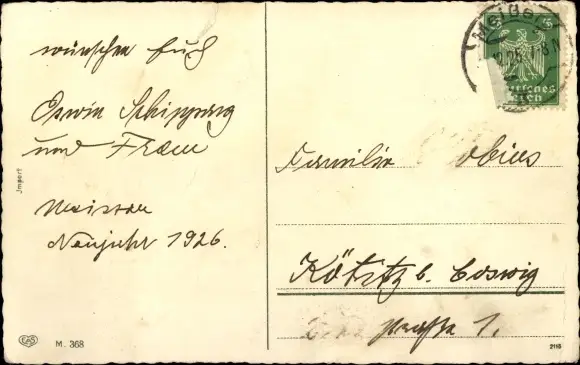 wünschen Euch
Oswin Schippang
und Frau
Neujahr 1926.
Import
M. 368
Meißen
Deutsches
Reich
5
Familie
Kötitz b. Coswig
straße 1.
2116